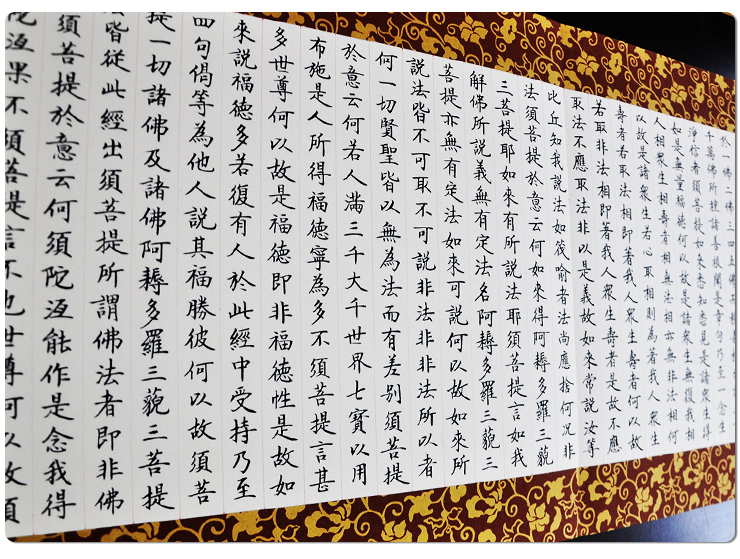 於一佛二佛三四五佛而種善
千萬佛所種諸善根聞是章句乃至一念生
淨信者須菩提如來悉知悉見是諸眾生得
如是無量福德何以故是諸眾生無復我相
人相眾生相壽者相無法相亦無非法相何
以故是諸眾生若心取相則為著我人眾生
壽者若取法相即著我人眾生壽者何以故
若取非法相即著我人眾生壽者是故不應
取法不應取法非以是義故如來常說汝等
比丘知我說法如筏喻者法尚應捨何況非
法須菩提於意云何如來得阿耨多羅三藐
三菩提耶如來有所說法耶須菩提言如我
解佛所說義無有定法名阿耨多羅三藐三
菩提亦無有定法如來可說何以故如來所
說法皆不可取不可說非法非非法所以者
何一切賢聖皆以無為法而有差別須菩提
於意云何若人滿三千大千世界七寶以用
布施是人所得福德寧為多不須菩提言甚
多世尊何以故是福德即非福德性是故如
來說福德多若復有人於此經中受持乃至
四句偈等為他人說其福勝彼何以故須菩
提一切諸佛及諸佛阿耨多羅三藐三菩提
法皆從此經出須菩提所謂佛法者即非佛
須菩提於意云何須陀洹能作是念我得
陀洹果不須菩提言不也世尊何以故須